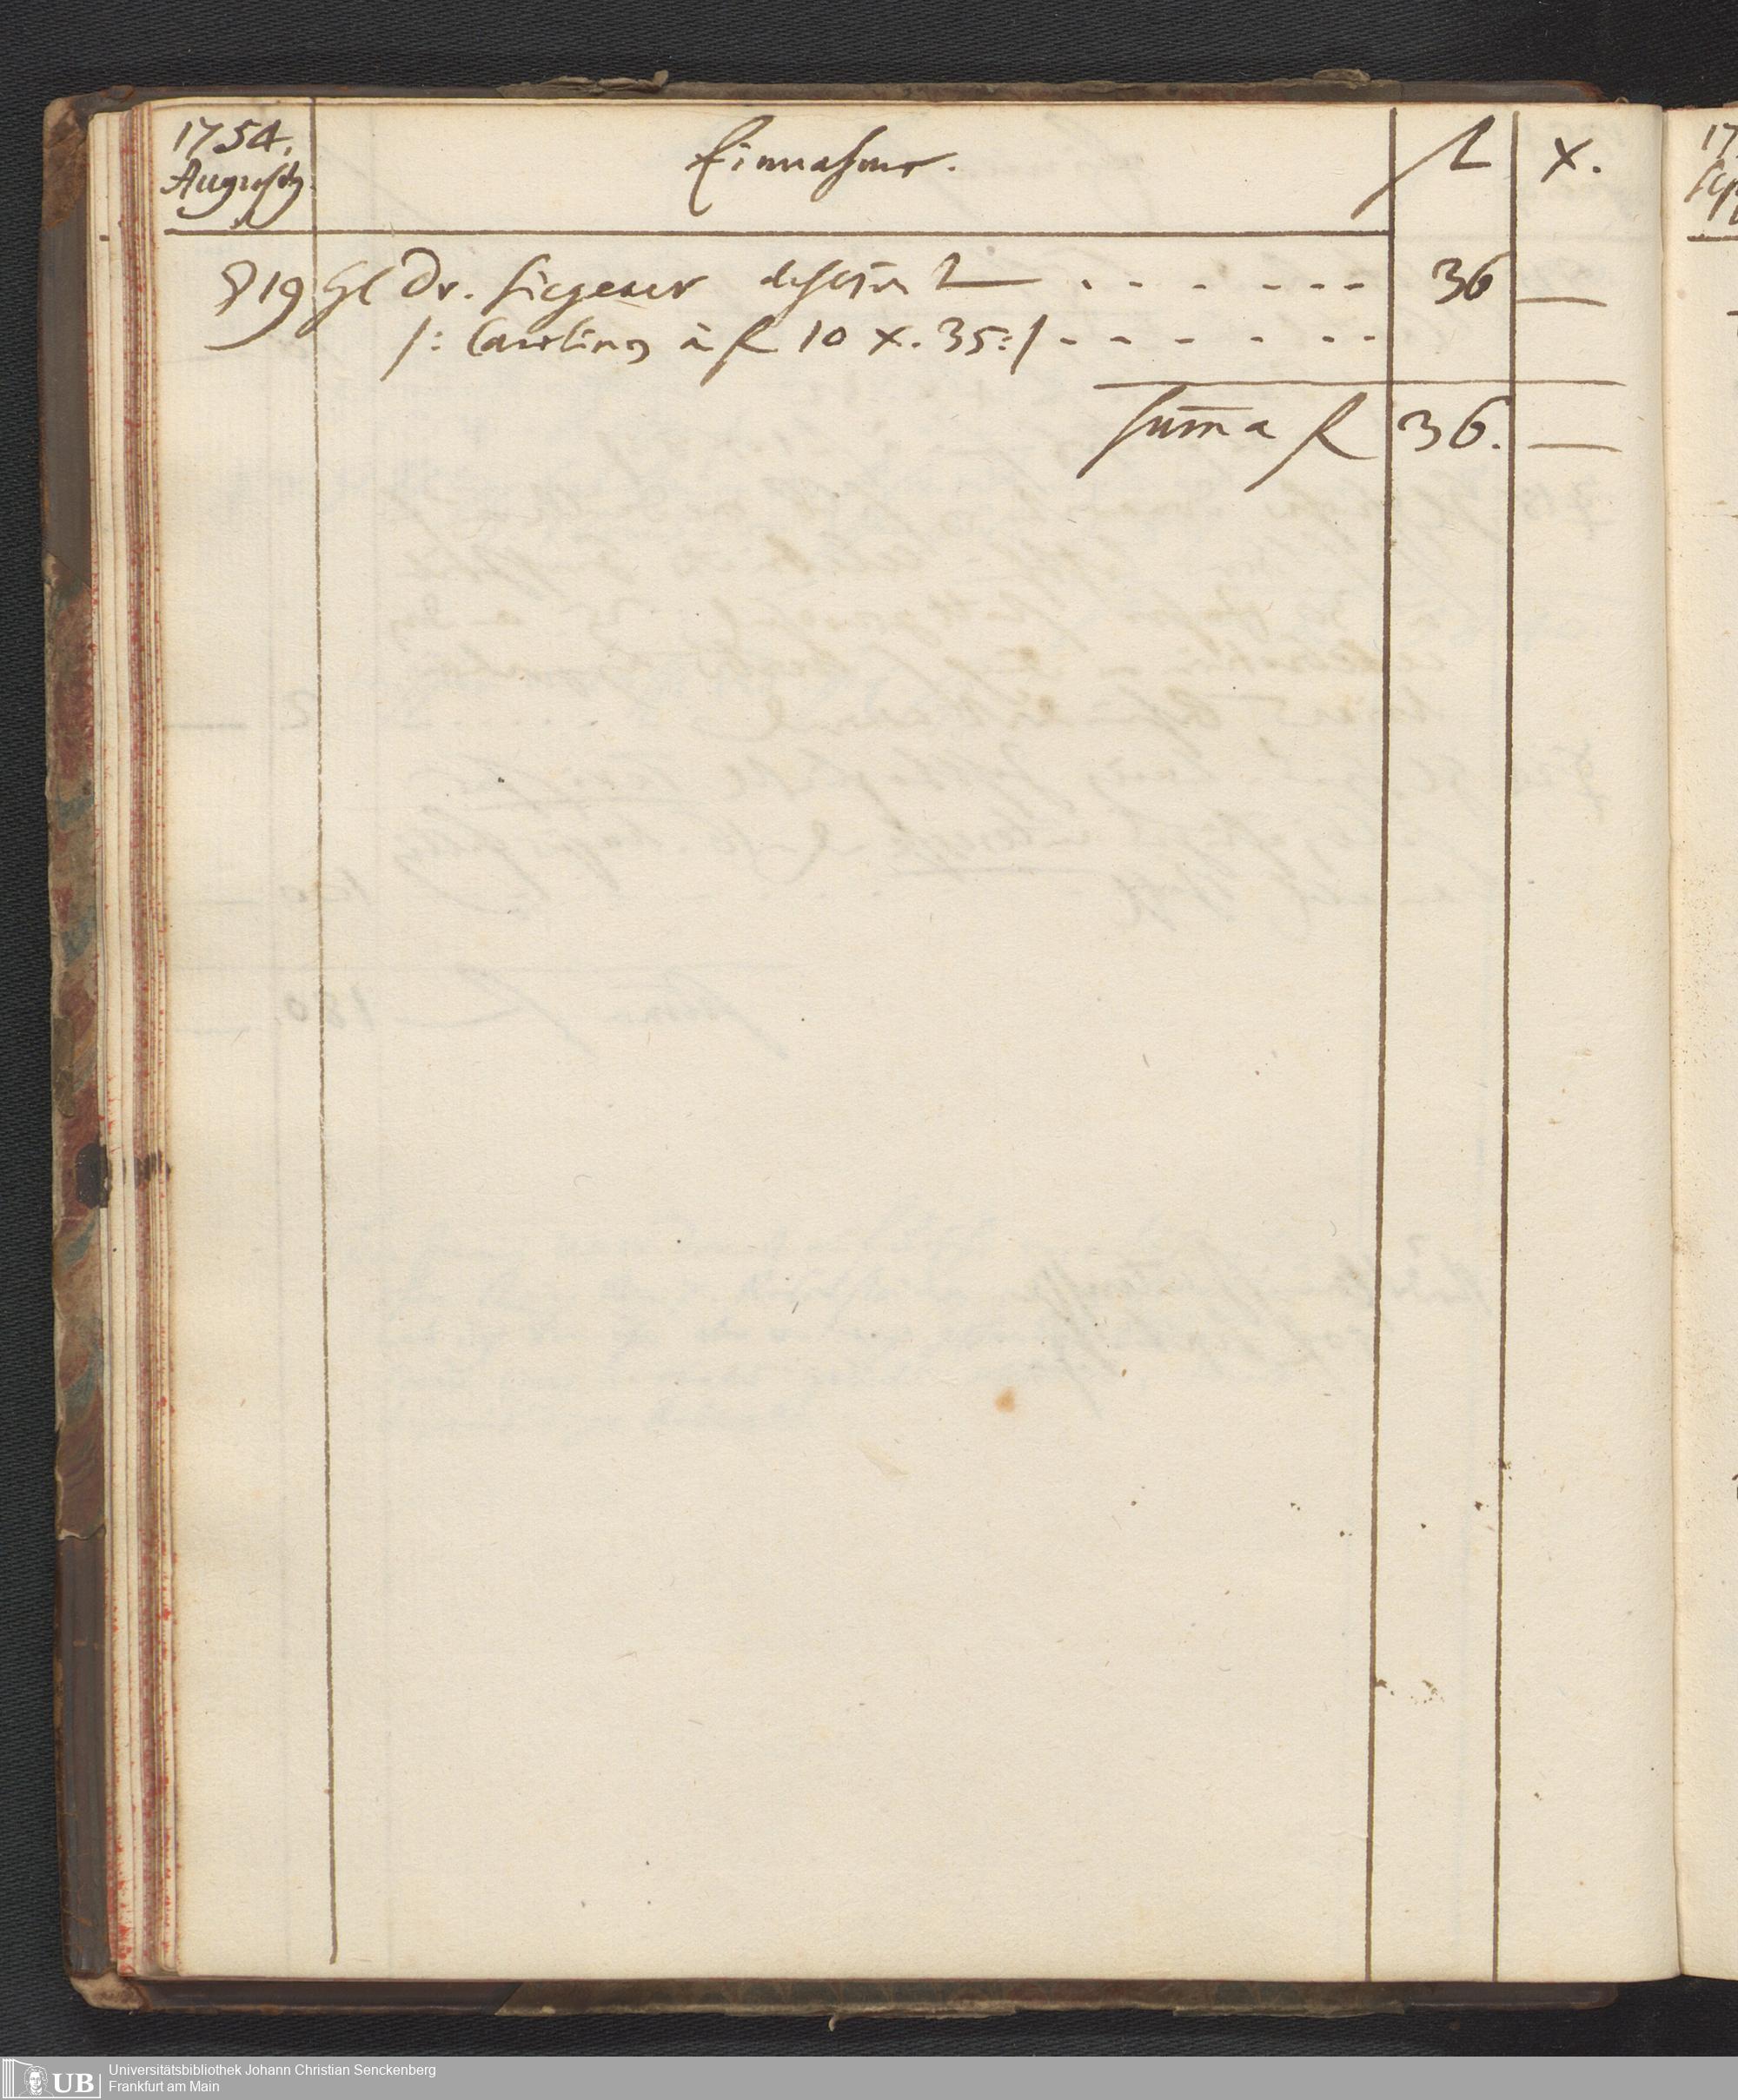 1754.
Augusty.
Einnahme.
fl
x.
19 Hl Dr. Siegener
36 —
/: Carolinen à fl 10 x. 35:/
Suma fl 36. —
17
UB Universitätsbibliothek Johann Christian Senckenberg
Frankfurt am Main